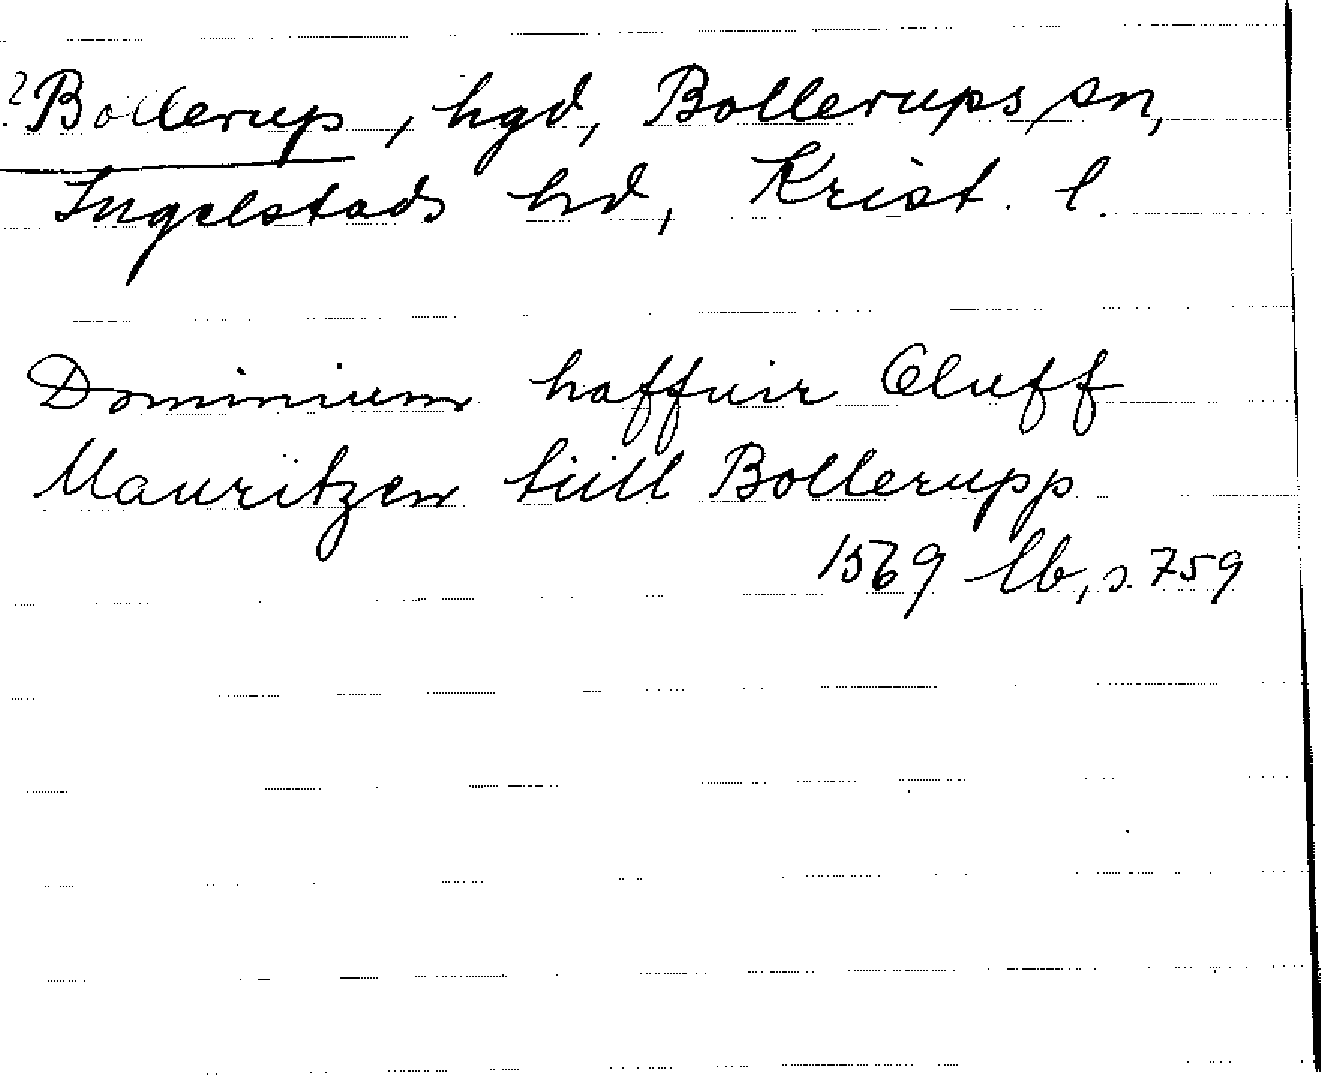 ?Bollerup, hgd, Bollerups sn,
Ingelstads hd, Krist. l.
Dominium haffuir Oluff
Mauritzen tiill Bollerupp
1569 lb, s. 759